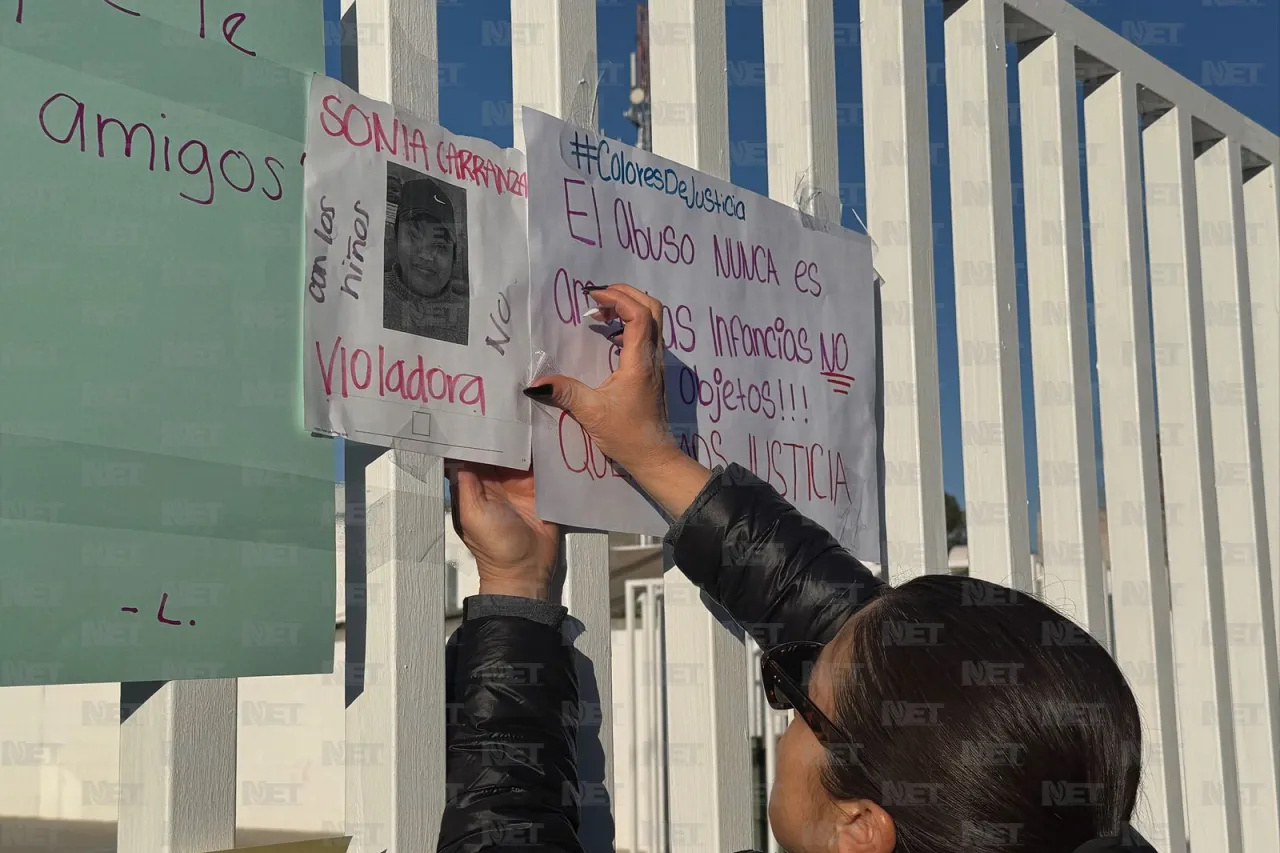 le
amigos
- L.
SONIA CARRANZA
con los
niños
No
Violadora
#ColoresDeJusticia
El abuso NUNCA es
infancias NO
objetos!!!
JUSTICIA
NET